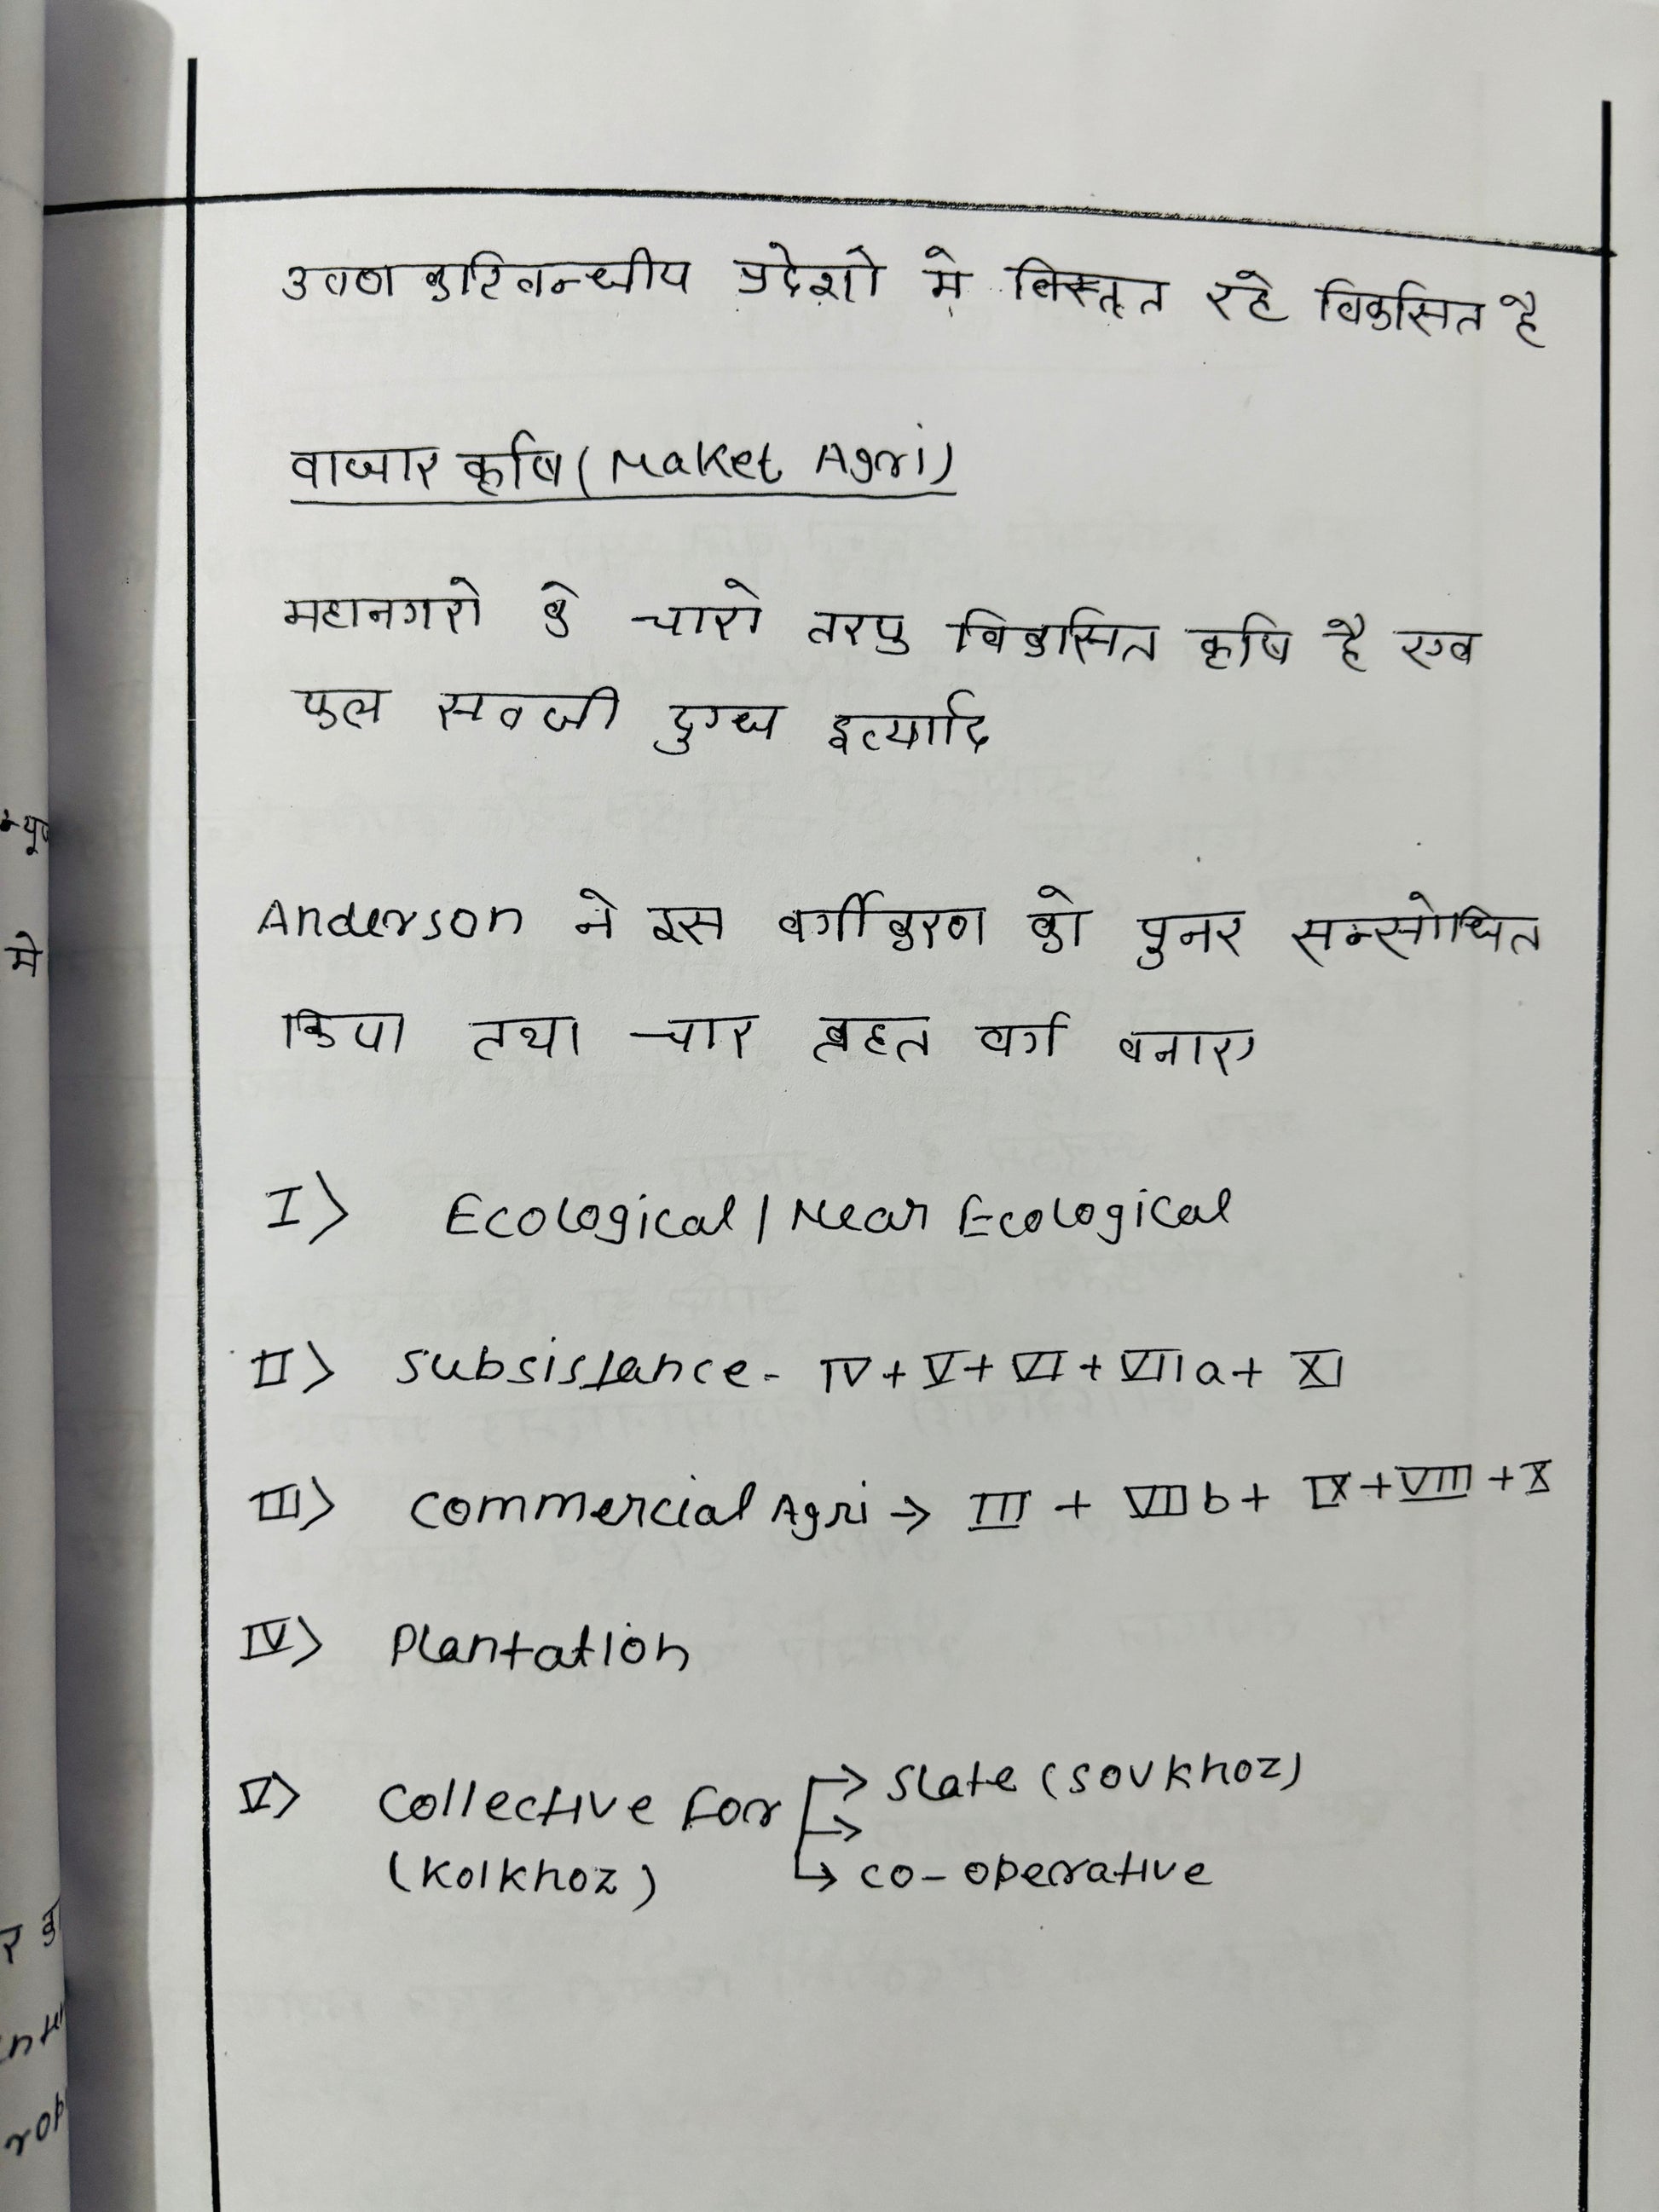 उवण कटिवन्धीय प्रदेशो मे विस्तृत रहे विकसित है
वाजार कृषि (Maket Agri)
महानगरो के चारो तरफ विकसित कृषि है एव
फल सवजी दुग्ध इत्यादि
Anderson ने इस वर्गीकरण को पुनर सन्सोधित
किया तथा चार व्रहत वर्ग वनाए
I> Ecological / Near Ecological
II> Subsistance - IV + V + VI + VIIa + XI
III> Commercial Agri → III + VIIb + IX + VIII + X
IV> Plantation
V> Collective for → State (Sovkhoz)
(Kolkhoz) → co-operative
मे